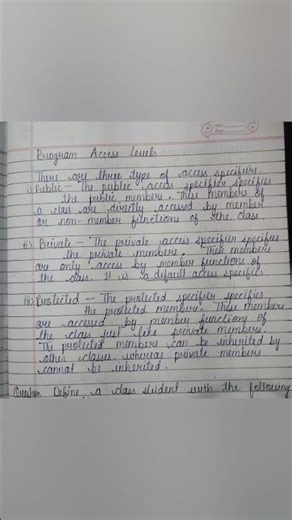 Program Access Levels
There are three type of access specifiers.
i) Public - The public access specifier specifies
the public members. These members of
a class are directly accessed by member
or non-member functions of the class
ii) Private - The private access specifier specifies
the private members. These members
are only access by member functions of
the class. It is a default access specifier
iii) Protected - The protected specifier specifies
the protected members. These members
are accessed by member functions of
the class just like private members.
The protected members can be inherited by
other classes whereas private members
cannot be inherited.
Define, a class student with the following